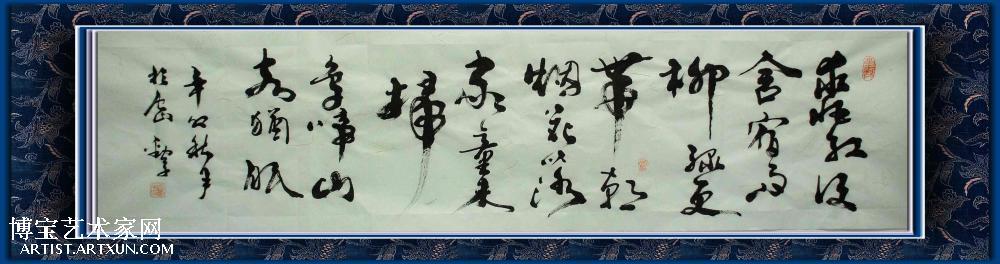 桃红復
含宿雨
柳绿更
帶朝
烟花落
家童未
掃
鸟啼山
客猶眠
辛卯秋月
於
博宝艺术家网
ARTIST.ARTXUN.COM